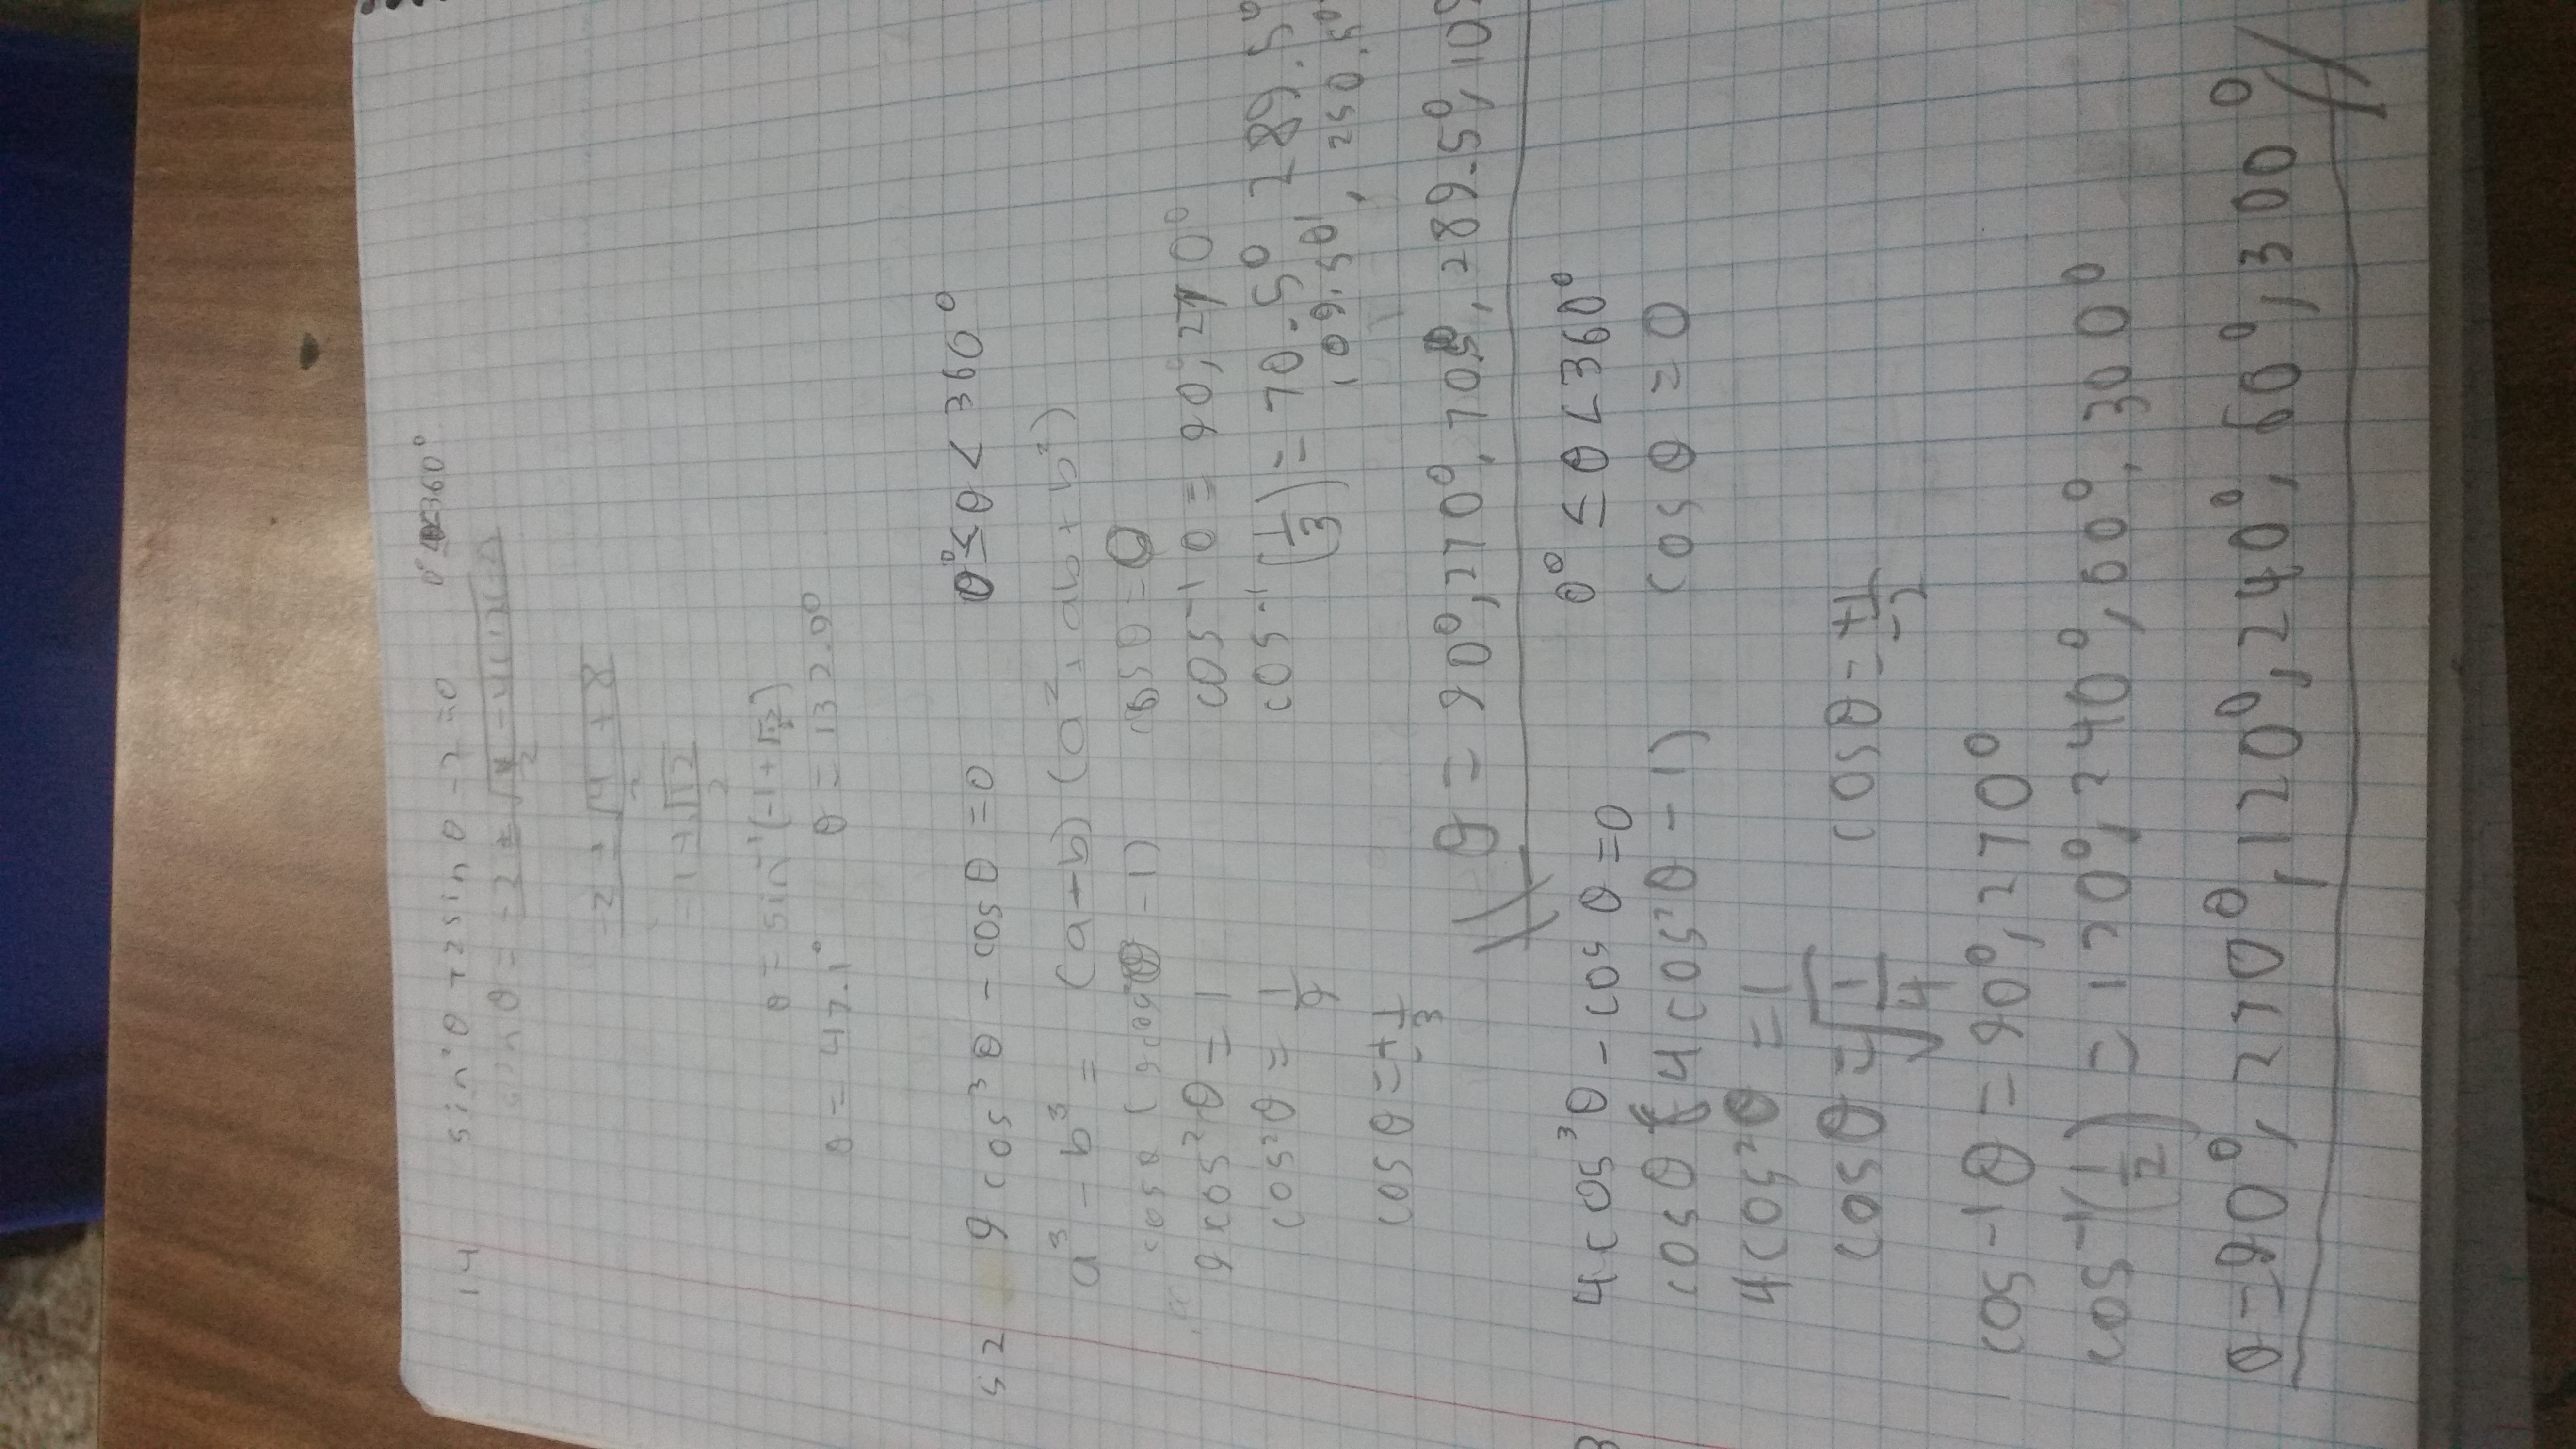 14 sin²θ + 2sinθ - 2 = 0 0° ≤ θ < 360°
sinθ = -2 ±
-2 ± √4 + 8
2
-1 ± √12
2
θ = sin⁻¹(-1+√3)
θ = 47.1° θ = 132.9°
52 9cos³θ - cosθ = 0 0° ≤ θ < 360°
a³ - b³ = (a-b)(a² + ab + b²)
cosθ (9cos²θ - 1) cosθ = 0
9cos²θ = 1 cos⁻¹ 0 = 90°, 270°
cos²θ = 1/9 cos⁻¹(1/3) = 70.5° 289.5°
109.50, 250.50
cosθ = ±1/3
θ = 90°, 270°, 70.5°, 289.5°, 109
4cos³θ - cosθ = 0 0° ≤ θ < 360°
cosθ (4cos²θ - 1) cosθ = 0
4cos²θ = 1
cosθ = √1/4 cosθ = ±1/2
cos⁻¹θ = 90°, 270°
cos⁻¹(1/2) = 120°, 240°, 60°, 300°
θ = 90°, 270°, 120°, 240°, 60°, 300°